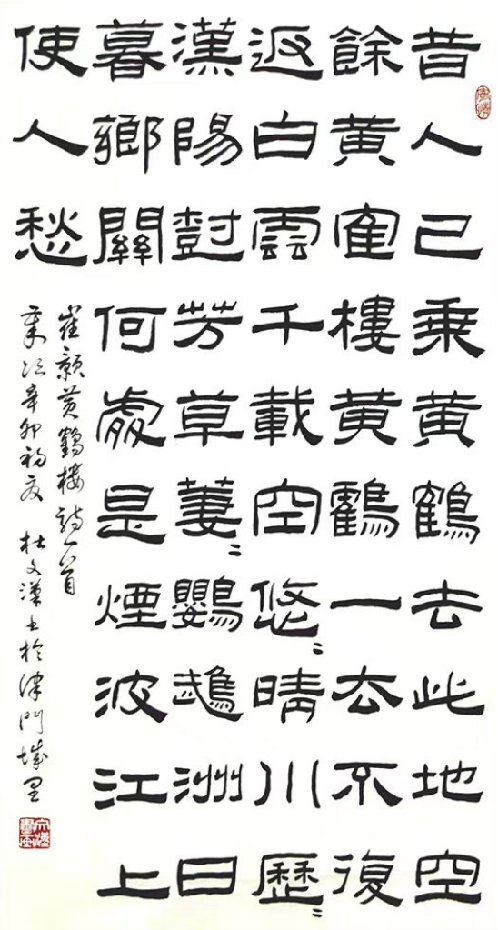 昔人已乘黄鶴去此地空
餘黄隺樓黄鶴一去不復
返白雲千載空悠〻晴川歷〻
漢陽尌芳草萋〻鸚鵡洲日
暮鄉關何處是煙波江上
使人愁
崔颢黄鶴樓詩一首
歲次辛卯初夏 杜文漢書於津門城里